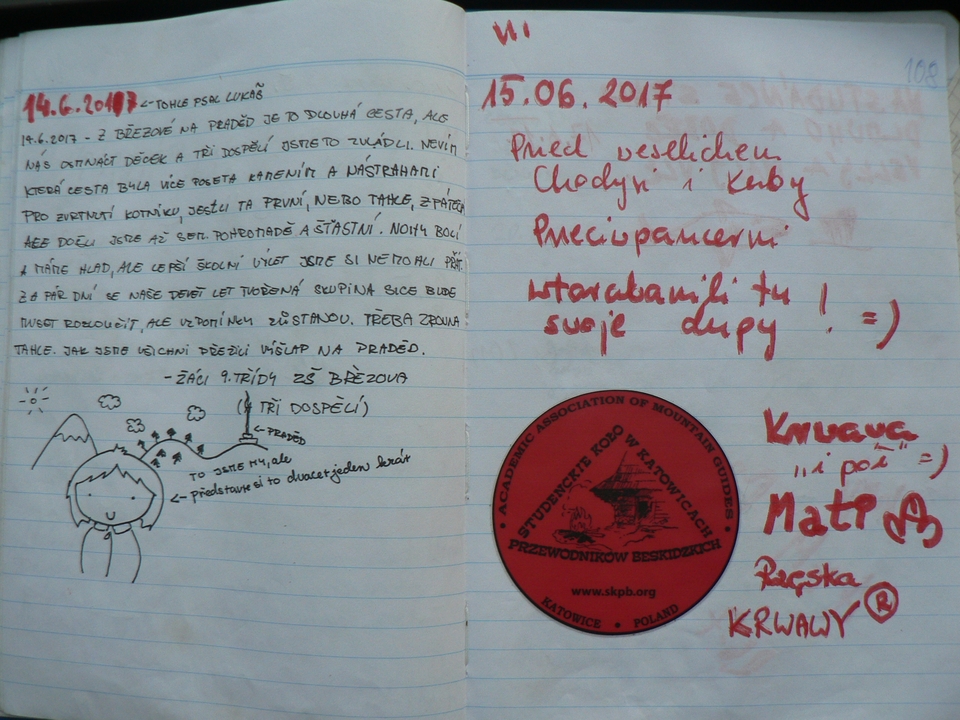 14.6.2017 ← TOHLE PSAL LUKÁŠ
14.6.2017 - Z BŘEZOVÉ NA PRADĚD JE TO DLOUHÁ CESTA, ALE
NÁS OSMNÁCT DĚCEK A TŘI DOSPĚLÍ JSME TO ZVLÁDLI. NEVÍM
KTERÁ CESTA BYLA VÍCE POSETA KAMENÍM A NÁSTRAHAMI
PRO ZVRTNUTÍ KOTNÍKU, JESTLI TA PRVNÍ, NEBO TAHLE, ZPÁTEČN
ALE DOŠLI JSME AŽ SEM. POHROMADĚ A ŠŤASTNÍ. NOHY BOLÍ
A MÁME HLAD, ALE LEPŠÍ ŠKOLNÍ VÝLET JSME SI NEMOHLI PŘÁT.
ZA PÁR DNÍ SE NAŠE DEVĚT LET TVOŘENÁ SKUPINA SICE BUDE
MUSET ROZLOUČIT, ALE VZPOMÍNKY ZŮSTANOU. TŘEBA ZROVNA
TAHLE. JAK JSME VŠICHNI PŘEŽILI VÝŠLAP NA PRADĚD.
- ŽÁCI 9. TŘÍDY ZŠ BŘEZOVA
(+ TŘI DOSPĚLÍ)
← PRADĚD
TO JSME MY, ale
← představte si to dvacet jeden krát
108
15.06.2017
Przed weselichem
Chodyni i Kuby
Przeciwpancerni
wtarabanili tu
swoje dupy ! =)
ACADEMIC ASSOCIATION OF MOUNTAIN GUIDES
STUDENCKIE KOŁO W KATOWICACH
PRZEWODNIKÓW BESKIDZKICH
www.skpb.org
KATOWICE • POLAND
Krwawa
„i pół" =)
Mati
Ręska
KRWAWY ®